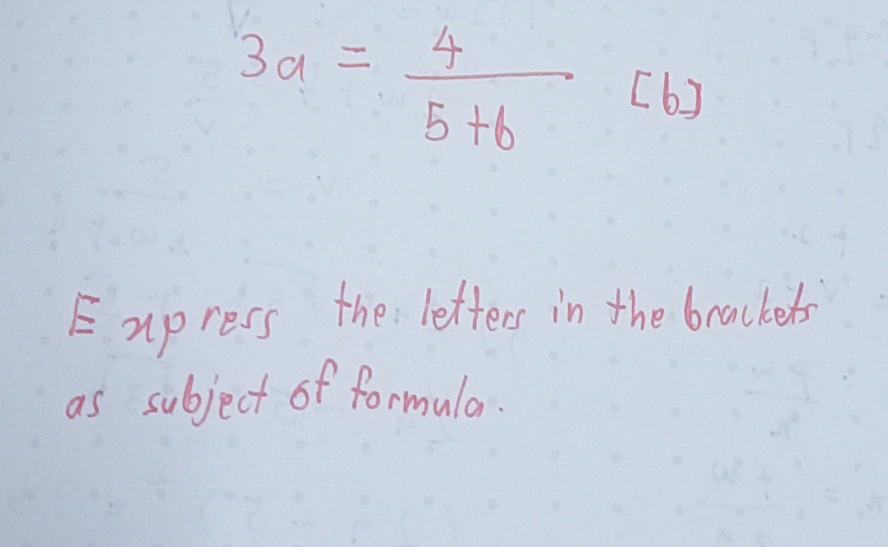 3a = 4 / 5 + b [b]
Express the letters in the brackets
as subject of formula.